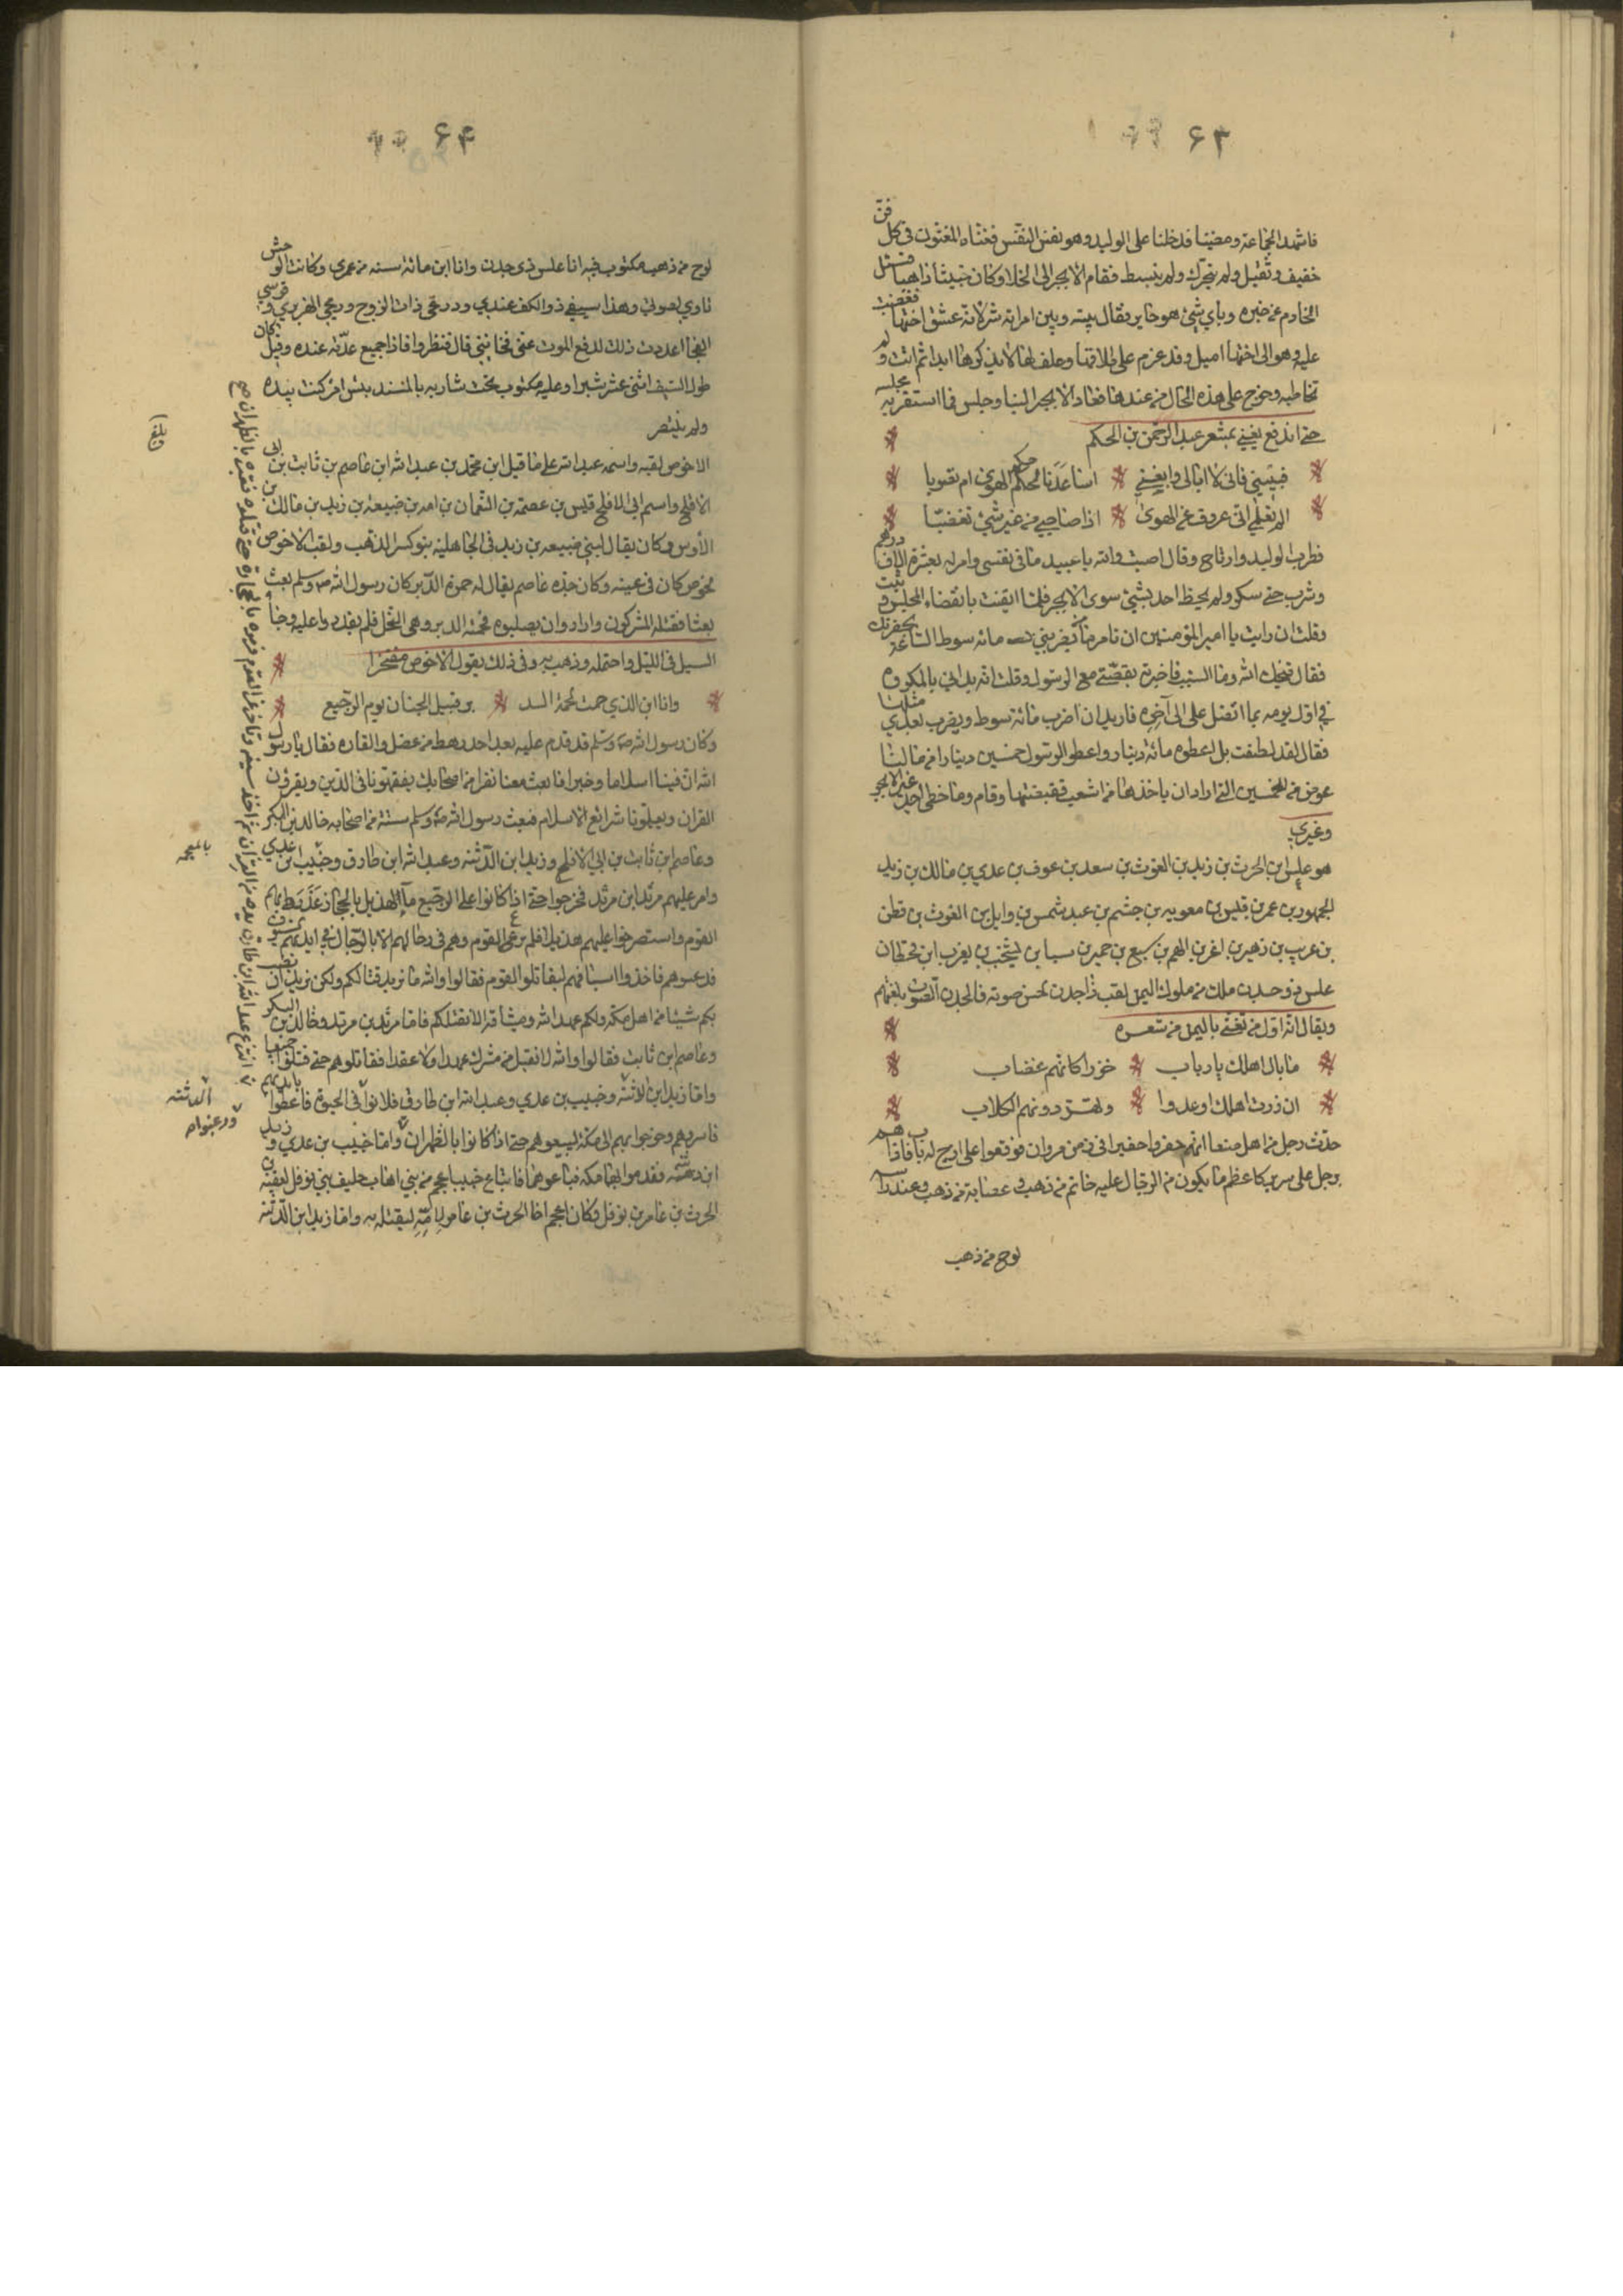 ۶۳
فاشهد الجماعة ومضينا فدخلنا على الوليد وهو لقس النفس فغناه المغنون في كل فن
خفيف وثقيل ولم يتحرك ولم ينبسط فقام الابجر الى الخلا وكان خبيثا ذاهبا فسئل
الخادم عن خبره وباي شئ هو خاير فقال بينه وبين امراته شر لانه عشق اختها فغضبت
عليه وهو الى اختها اميل وقد عزم على طلاقها وحلف لها لا يذكرها ابدا ثم اتت ولم
تخاطبه وخرج على هذه الحال من عندها فعاد الابجر الينا وجلس فما استقر به مجلسه
حتى اندفع يغني بشعر عبد الرحمن بن الحكم
فبيني فاني لا ابالي وايقني اساعدنا حكم الهوى ام تصوبا
الم تعلمي اني عروف عن الهوى اذا صاحبي من غير شئ تغضبا
فطرب الوليد وارتاح وقال اصبت والله يا عبيد ما في نفسي وامر له بعشرة الاف درهم
وشرب حتى سكر ولم يحظ احد بشئ سوى الابجر فلما ايقنت بانقضاء المجلس وثبت
وقلت ان رايت يا امير المؤمنين ان تامر من يضربني مائة سوط الساعة بحضرتك
فقال قبحك الله وما السبب فاخبرته بقصتي مع الرسول وقلت انه بداني بالمكروه
في اول يومه بما اتصل علي الى آخره فاريد ان اضرب مائة سوط ويضرب بعدي مثلها
فقال لقد لطفت بل اعطوه مائة دينار واعطوا الرسول خمسين دينارا من مالنا
عوض من الخمسين التي اراد ان ياخذها من اشعب فقبضتها وقام وما حظى احد غير الابجر
وغيري
هو علس ابن الحرث بن زيد بن الغوث بن سعد بن عوف بن عدي بن مالك بن زيد
الجمهور بن عمر بن قيس بن معويه بن جشم بن عبد شمس بن وايل بن الغوث بن قطن
بن عريب بن زهير بن اغر بن الهم بن كسع بن حمير بن سبا بن يشجب بن يعرب ابن قحطان
علس ذو جدن ملك من ملوك اليمن لقب ذا جدن لحسن صوته فالجدن الصوت بلغتهم
ويقال انه اول من تغنى باليمن من شعره
ما بال اهلك يا رباب خزرا كانهم غضاب
ان زرت اهلك اوعدوا وتهر دونهم الكلاب
حدث رجل من اهل صنعا انهم حفروا حفيرا في زمن مروان فوقعوا على ازج له باب فاذا هم
برجل على سرير كاعظم ما يكون من الرجال عليه خاتم من ذهب وعصابة من ذهب وعند راسه
لوح من ذهب
۶۴
لوح من ذهب مكتوب فيه انا علس ذي جدن وانا ابن مائة سنة من عمري وكانت الوحش
تاوي لصوتي وهذا سيفي ذو الكف عندي ودرعي ذات الزوج ورمحي الهزبري وقوسي
الفجا اعددت ذلك لدفع الموت عني فخانني قال فنظروا فاذا جميع عدته عنده وقيل كان
طول السيف اثني عشر شبرا وعليه مكتوب تحت شاربه بالمسند بئس امر كنت بيده
ولم ينتصر
الاخوص لقبه واسمه عبد الله على ما قيل ابن محمد بن عبد الله ابن عاصم بن ثابت بن ابي
الافلح واسم ابي الافلح قيس بن عصمه بن النعمان بن امه بن ضبيعه بن زيد بن مالك بن
الأوس وكان يقال لبني ضبيعه بن زيد في الجاهليه بنو كسر الذهب ولقب الاخوص
لخوص كان في عينه وكان جده عاصم يقال له حمى الدبر كان رسول الله ص وسلم بعث
بعثا فقتله المشركون وارادوا ان يصلبوه فحمته الدبر وهي النحل فلم يقدروا عليه وجا
السيل في الليل واحتمله وذهب به وفي ذلك يقول الاخوص مفتخرا
وانا ابن الذي حمت لحمه الد بر قتيل الجنان يوم الرجيع
وكان رسول الله ص وسلم قد قدم عليه بعد احد رهط من عضل والقاره فقال يا رسول
الله ان فينا اسلاما وخيرا فابعث معنا نفرا من اصحابك يفقهونا في الدين ويقرؤن
القران ويعلمونا شرائع الاسلام فبعث رسول الله ص وسلم ستة من اصحابه خالد بن البكر
وعاصم ابن ثابت بن ابي الافلح وزيد ابن الدثنه وعبد الله ابن طارق وخبيب بن عدي
وامر عليهم مرثد ابن مرثد فخرجوا حتى اذا كانوا على الرجيع مآ لهذيل بالحجاز غدر بهم
القوم واستصرخوا عليهم هذيلا فلم يرع القوم وهم في رحالهم الا بالرجال في ايديهم السيوف
قد غشوهم فاخذوا اسيافهم ليقاتلوا القوم فقالوا والله ما نريد قتالكم ولكن نريد ان نصيب
بكم شيئا من اهل مكه ولكم عهد الله وميثاقه الا نقتلكم فاما مرثد بن مرثد وخالد بن البكر
وعاصم ابن ثابت فقالوا والله لا نقبل من مشرك عهدا ولا عقدا فقاتلوهم حتى قتلوا جميعا
واما زيد ابن الدثنه وخبيب بن عدي وعبد الله ابن طارق فلانوا في الحيوة فاعطوا بايديهم
فاسروهم وخرجوا بهم الى مكة ليبيعوهم حتى اذا كانوا بالظهران واما خبيب بن عدي وزيد
ابن دثنه فقدموا بهما مكه فباعوهما فابتاع خبيبا حجر من بني اهاب حليف بني نوفل لعقبه بن
الحرث بن عامر بن نوفل وكان حجر اخا الحرث بن عامر لامه ليقتله به واما زيد ابن الدثنه
انتزع عبد الله ابن طارق يده من القران ثم اخذ سيفه وتاخر عن القوم فرموه بالحجارة حتى قتلوه فقبره بالظهران صح
بلغ
بالمعجمه
الدثنه
ورغبوا